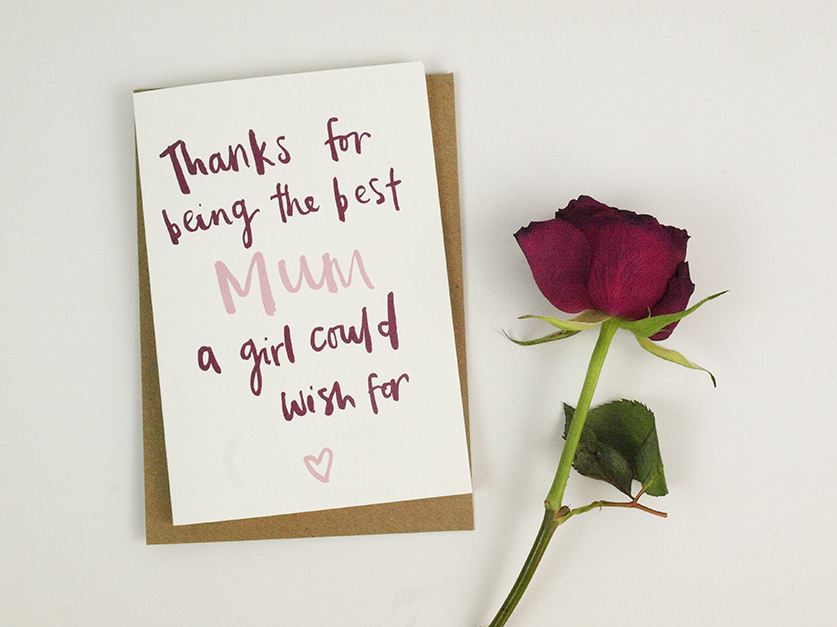 Thanks for
being the best
Mum
a girl could
wish for